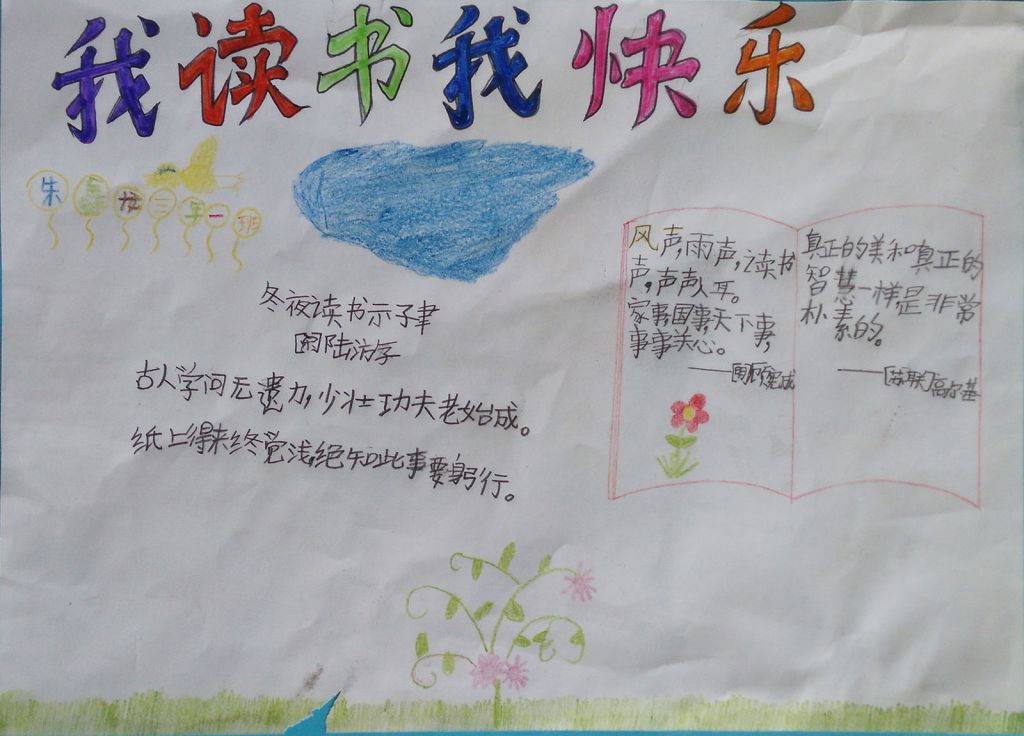 我读书我快乐
朱鑫龙三年一班
冬夜读书示子聿
陆游
古人学问无遗力,少壮功夫老始成。
纸上得来终觉浅,绝知此事要躬行。
风声,雨声,读书
声,声声入耳。
家事,国事,天下事,
事事关心。
——顾宪成
真正的美和真正的
智慧一样,是非常
朴素的。
——[苏联]高尔基